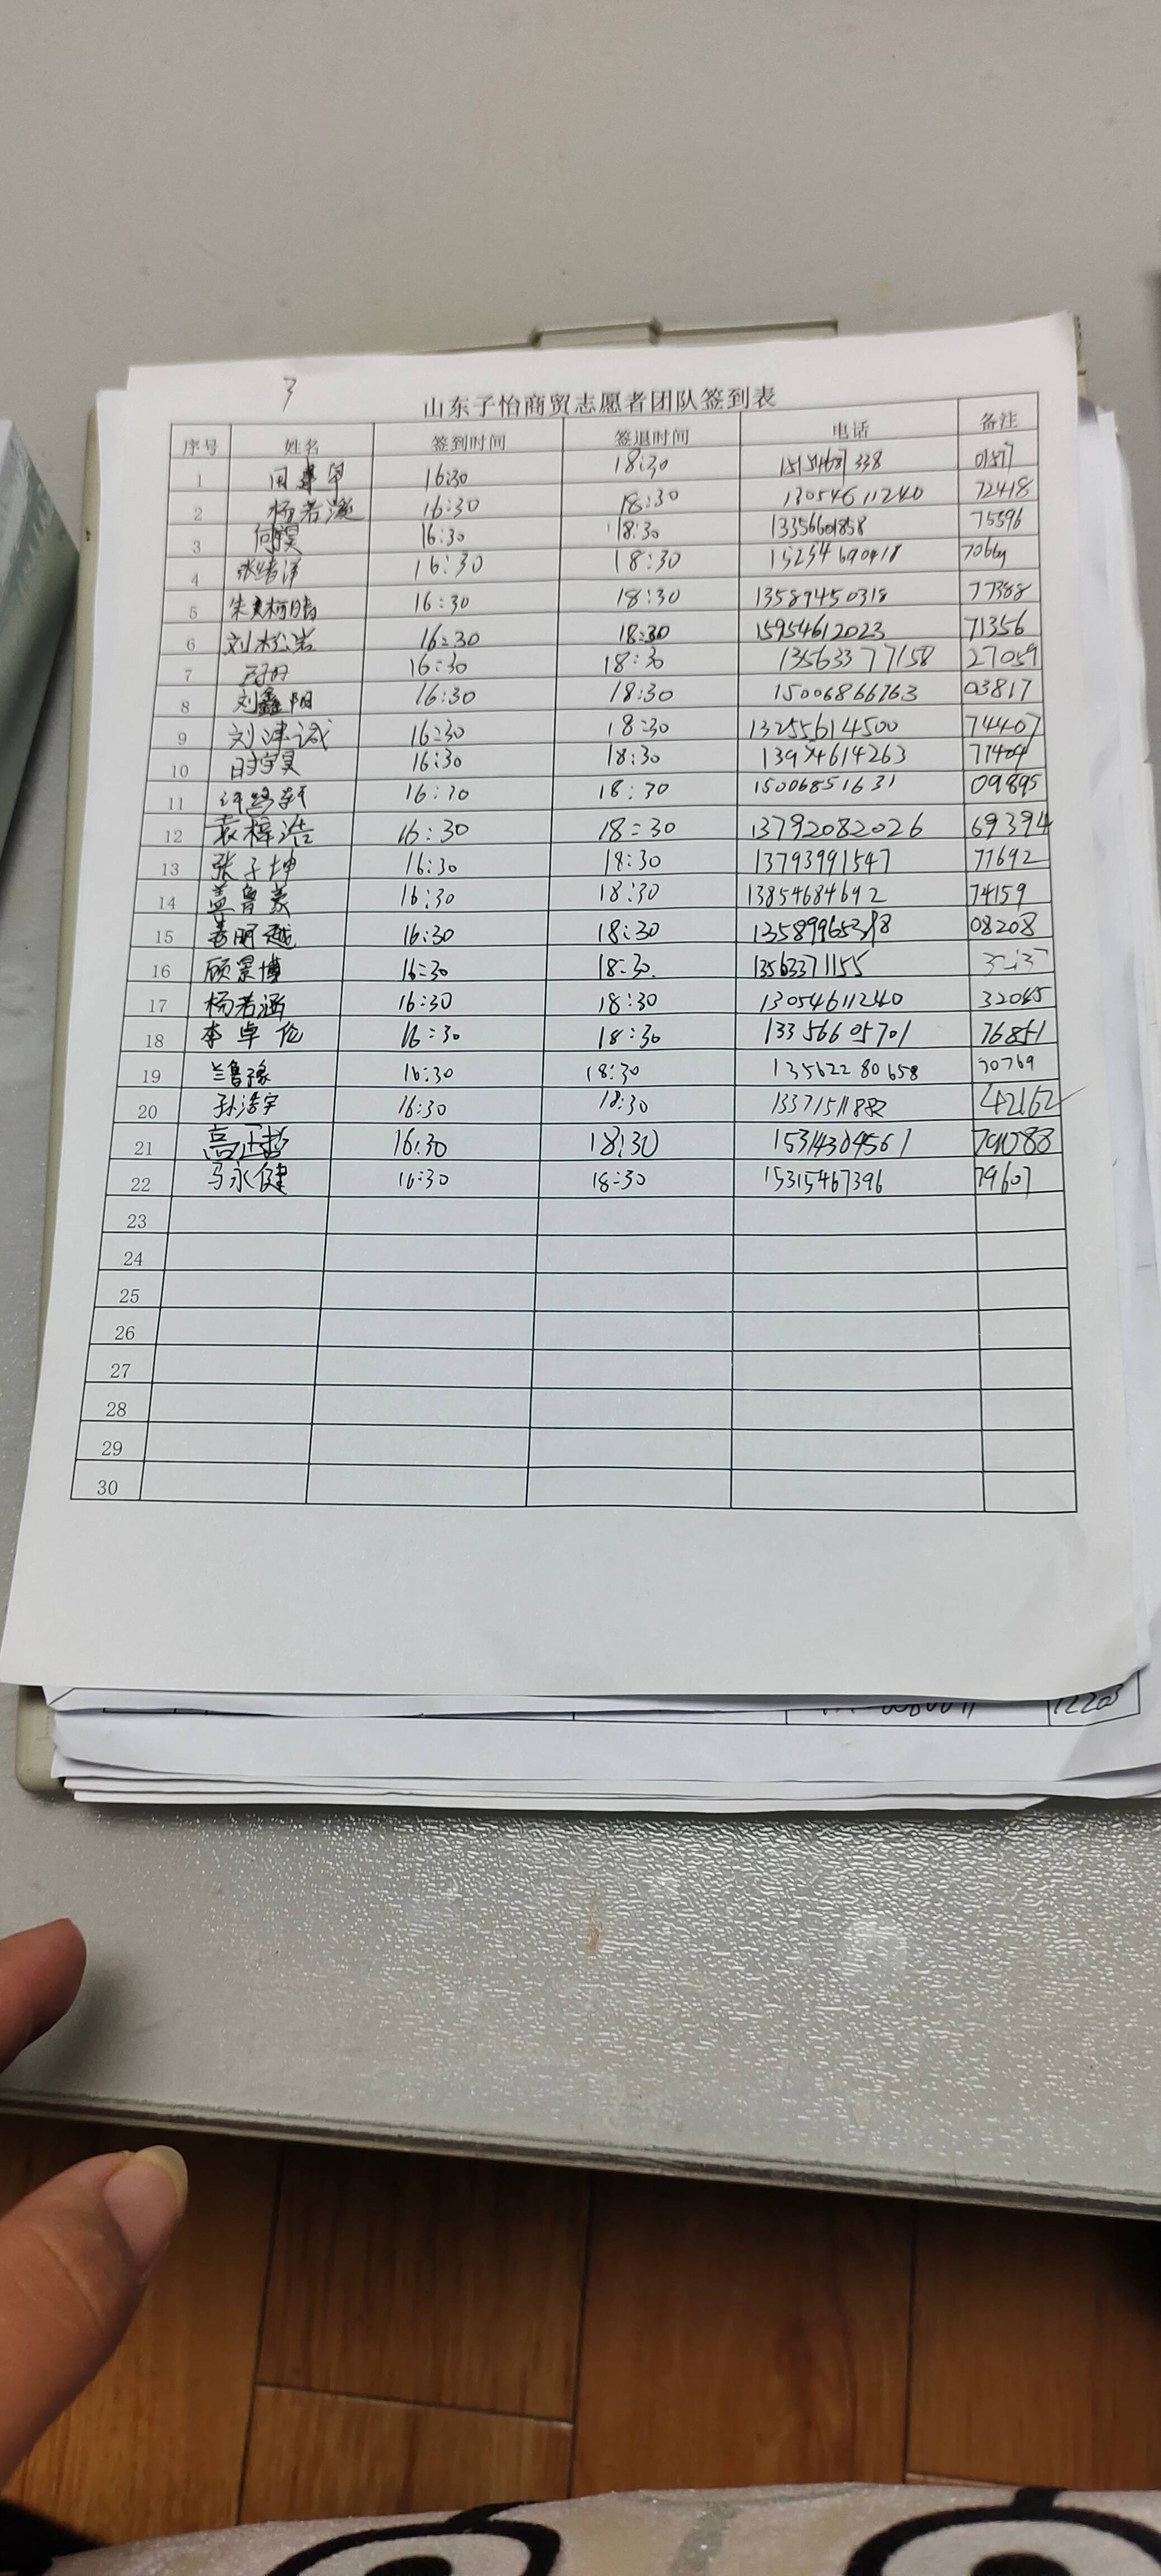 3
山东子怡商贸志愿者团队签到表
序号 姓名 签到时间 签退时间 电话 备注
1 16:30 18:30
2 杨若 16:30 18:30 13054611240 72418
3 16:30 18:30 75596
4 张 16:30 18:30
5 朱 16:30 18:30 13589450318 77388
6 刘 16:30 18:30 15954612023 71356
7 16:30 18:30 13563377158 27059
8 刘鑫阳 16:30 18:30 15006866763 03817
9 刘津诚 16:30 18:30 13255614500 74407
10 时宇昊 16:30 18:30 13974614263
11 16:30 18:30 15006851631 09895
12 袁梓浩 16:30 18:30 13792082026 69394
13 张子坤 16:30 18:30 13793991547 77692
14 盖鲁豪 16:30 18:30 13854684692 74159
15 16:30 18:30 08208
16 顾景博 16:30 18:30 13563371155
17 杨若涵 16:30 18:30 13054611240 32045
18 李卓伦 16:30 18:30 13356605701 76851
19 兰鲁豫 16:30 18:30 13562280658 70769
20 孙浩宇 16:30 18:30 13371511882 42162
21 高正哲 16:30 18:30 15314309561 79088
22 马永健 16:30 18:30 15315467396 79607
23
24
25
26
27
28
29
30
12203